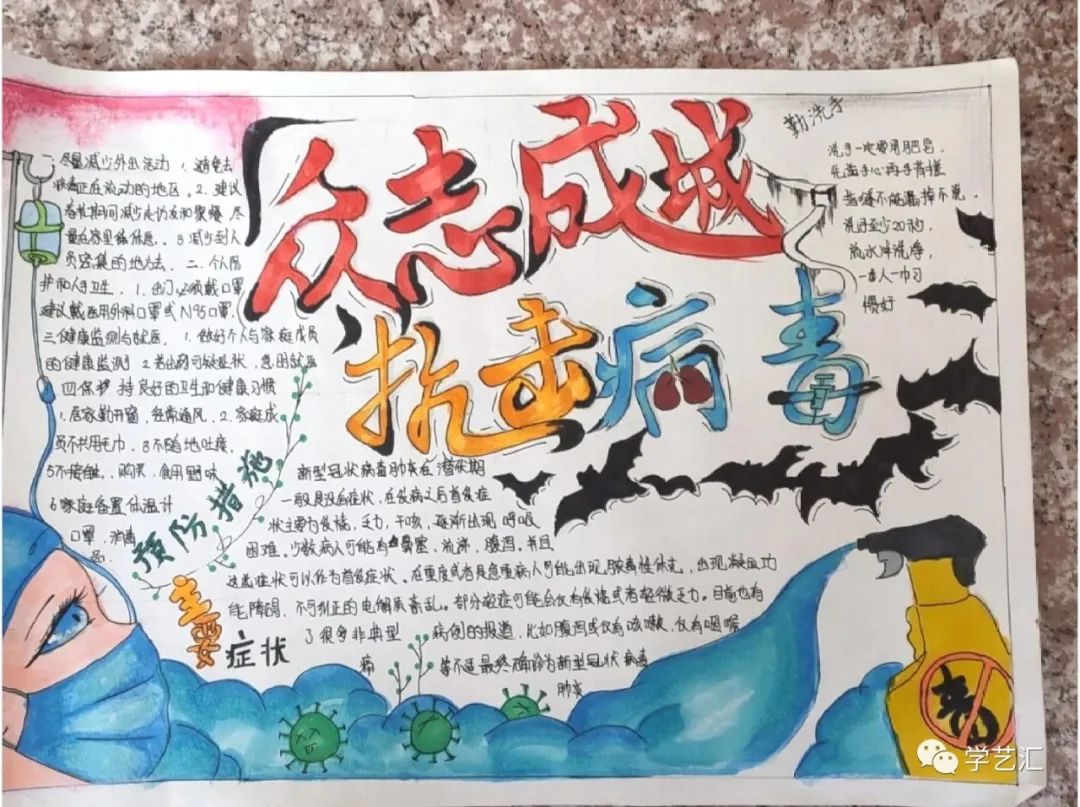 众志成城
抗击病毒
一、尽量减少外出活动 1、避免去
病毒正在流动的地区。2、建议
春礼期间减少走访友和聚餐 尽
量在家里休息。3 减少到人
员密集的地方去。二、个人防
护和人手卫生。1、出门必须戴口罩,
建议戴医用外科口罩或N95口罩,
三健康监测与就医, 1、做好个人与家庭成员
的健康监测 2 若出现可疑症状, 急图就医
四保 持良好的卫生和健康习惯
1、居家勤开窗, 经常通风, 2、家庭成
员不共用毛巾, 3不随地吐痰,
5不接触, 购买, 食用野味
6家庭备置体温计
口罩, 消毒
品
预防措施
勤洗手
洗手一定要用肥皂,
先搓手心再手背搓
指缝不能漏掉不能,
洗手至少20秒,
流水冲洗净,
一人一巾习
惯好
新型冠状病毒肺炎在潜伏期
一般是没有症状, 在发病之后首发症
状主要为发烧, 乏力, 干咳, 逐渐出现 呼吸
困难, 少数病人可能有鼻塞, 流涕, 腹泻。并且
这些症状可以作为首发症状。在重度或者是危重病人可能出现脓毒性休克, 出现凝血功
能障碍, 不可纠正的电解质紊乱。部分轻症可能会仅有发烧或者轻微乏力。目前也有
了很多非典型 病例的报道, 比如腹泻或仅有咳嗽, 仅有咽喉
痛 等不适最终确诊为新型冠状病毒
肺炎
主要
症状
毒
学艺汇